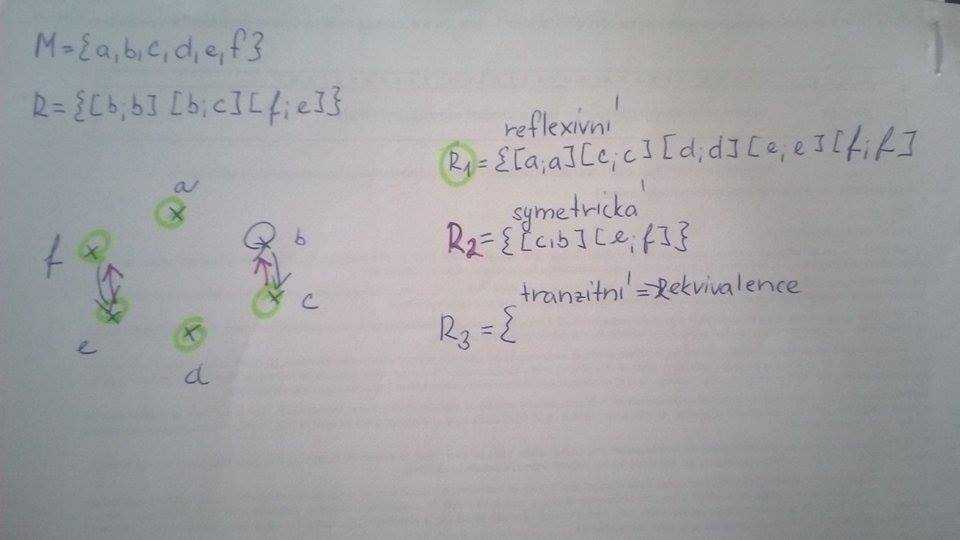 M={a,b,c,d,e,f}
R={[b;b] [b;c] [f;e]}
reflexivní
R1={[a;a][c;c][d;d][e;e][f;f]
symetrická
R2={[c;b][e;f]}
tranzitní => ekvivalence
R3={
a
f
b
c
e
d